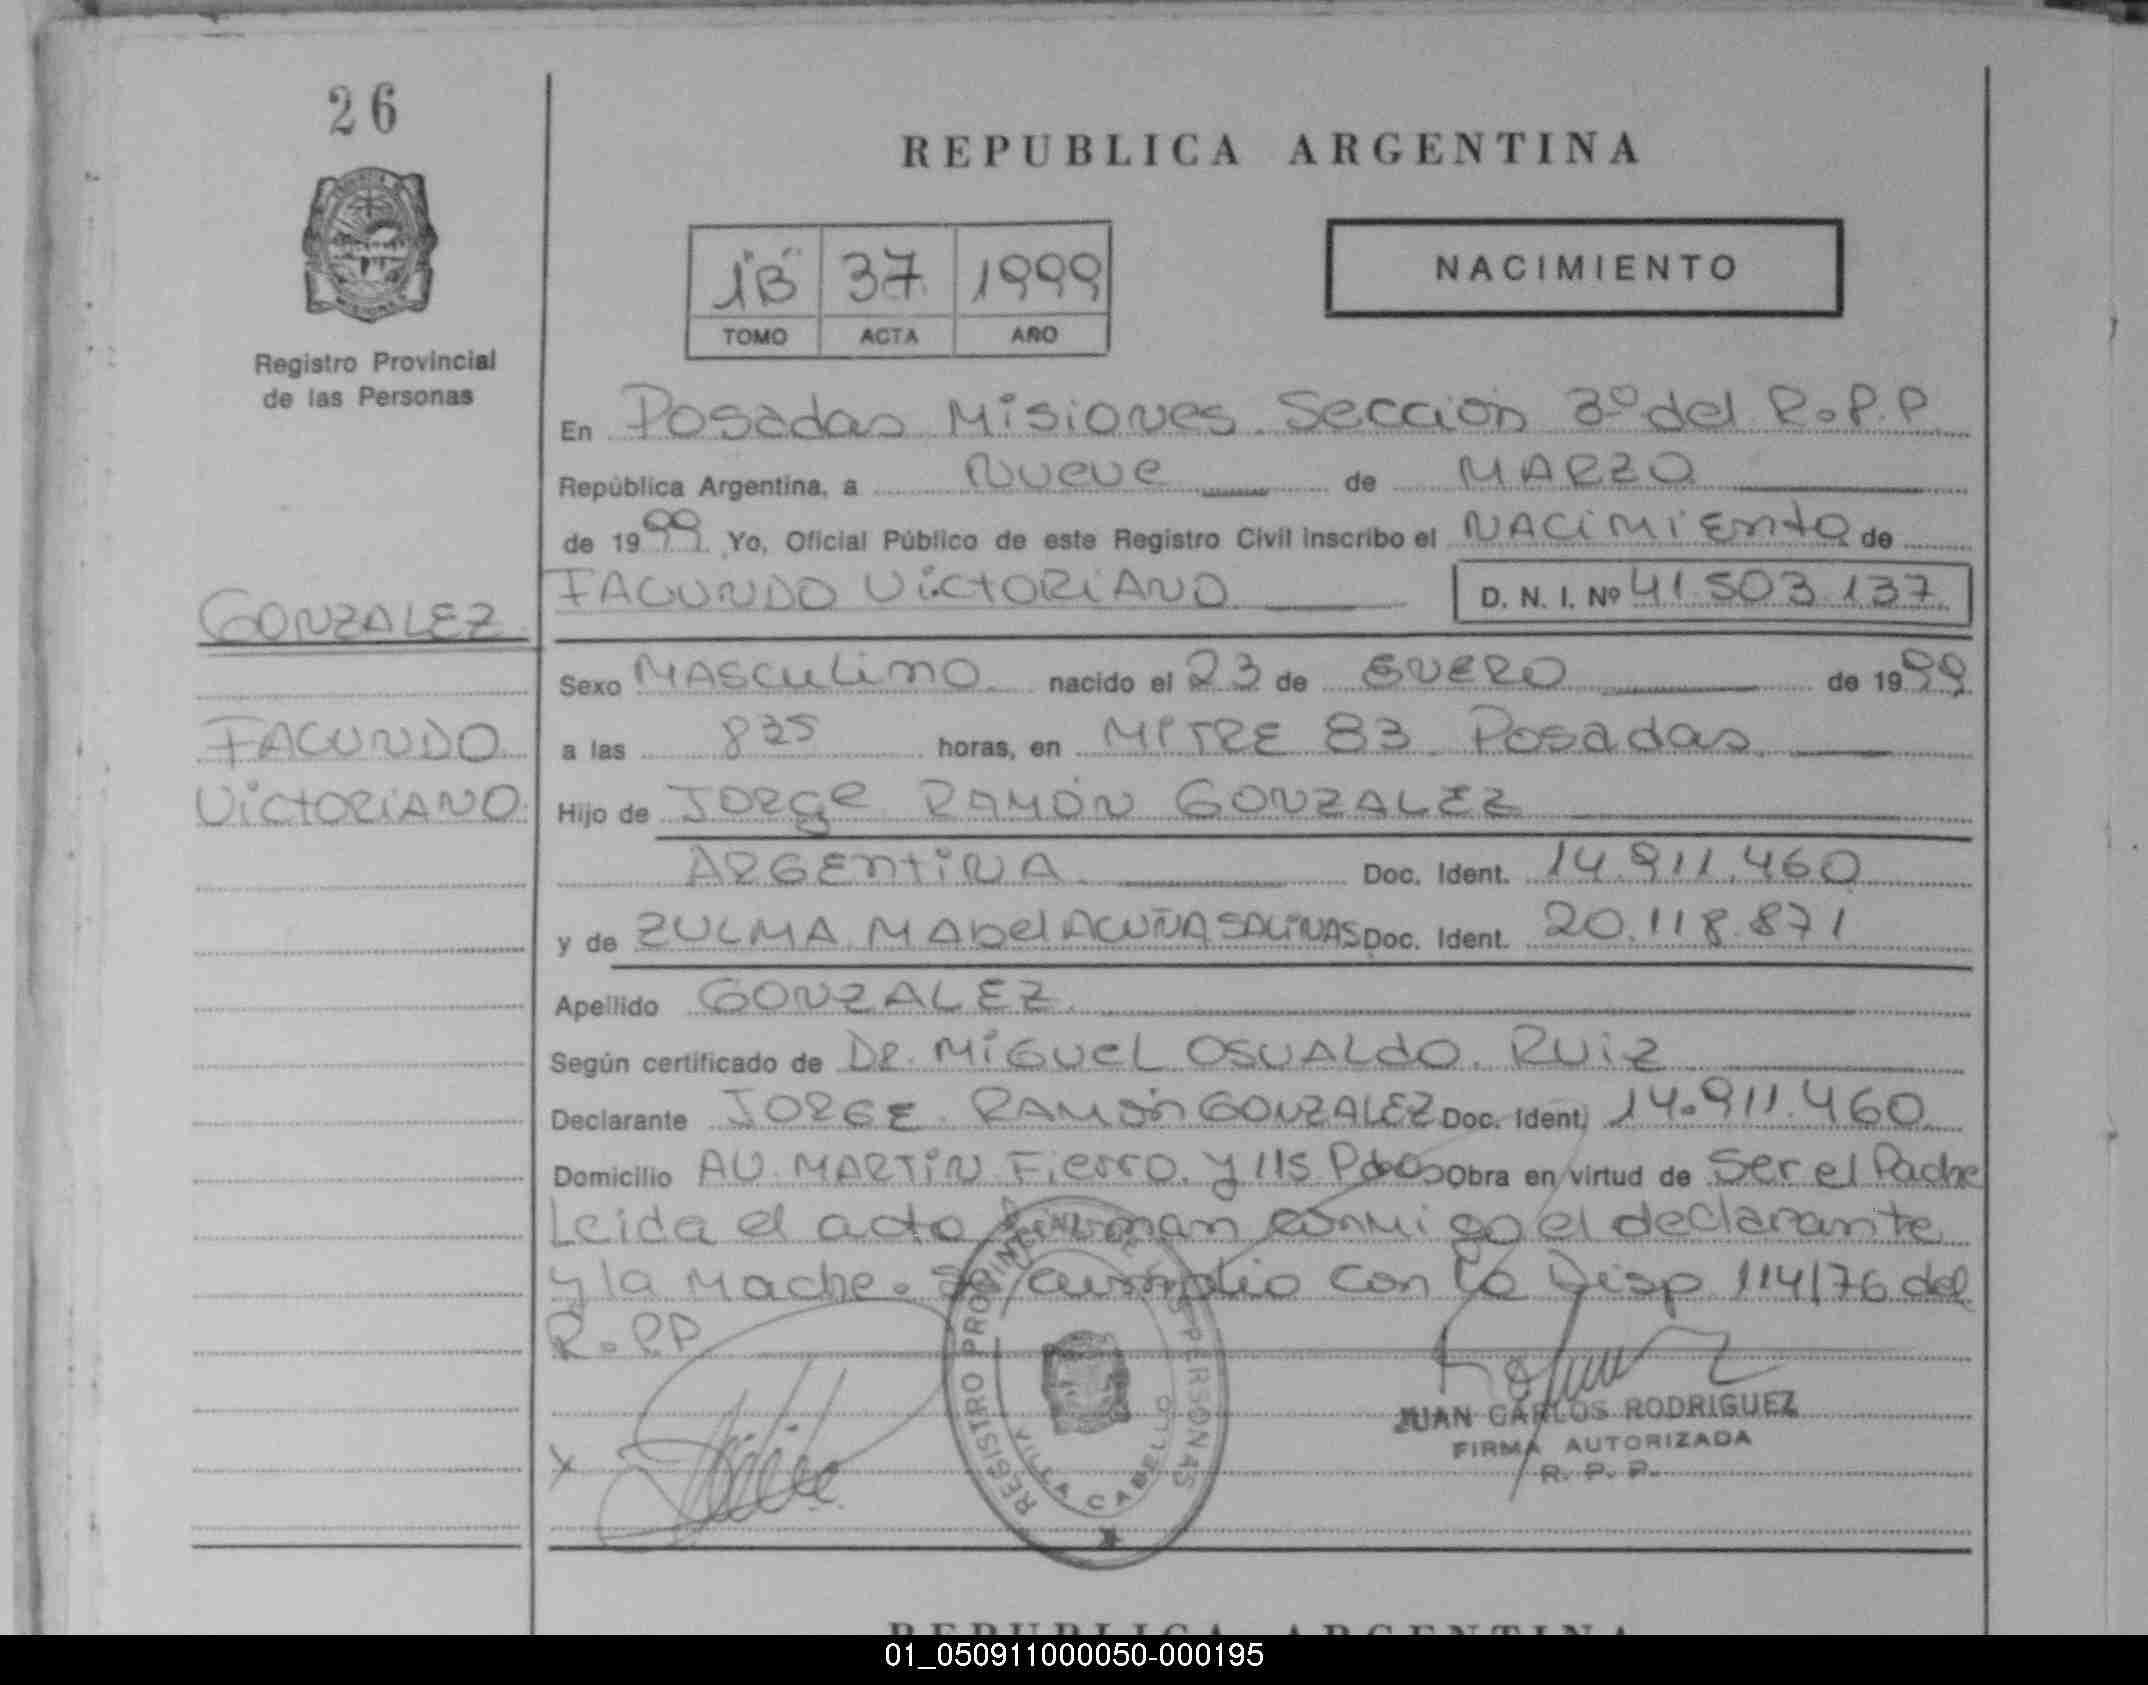 26
REPUBLICA ARGENTINA
1"B" 37 1999
TOMO ACTA AÑO
NACIMIENTO
Registro Provincial
de las Personas
En Posadas Misiones Sección 3º del R.P.P.
República Argentina, a Nueve de MARZO
de 1999 Yo, Oficial Público de este Registro Civil inscribo el NACIMIENTO de
GONZALEZ
FACUNDO VICTORIANO D. N. I. Nº 41.503.137
Sexo MASCULINO nacido el 23 de ENERO de 1999
FACUNDO
a las 835 horas, en MITRE 83 Posadas
VICTORIANO
Hijo de JORGE RAMÓN GONZALEZ
ARGENTINA Doc. Ident. 14.911.460
y de ZULMA MAbel ACUÑA SALINAS Doc. Ident. 20.118.871
Apellido GONZALEZ
Según certificado de DR. MIGUEL OSVALDO RUIZ
Declarante JORGE RAMÓN GONZALEZ Doc. Ident. 14.911.460
Domicilio AV. MARTIN Fierro y 115 Pdas Obra en virtud de Ser el Padre
Leida el acta firman conmigo el declarante
y la Madre. Se cumplio con la Disp 114/76 del
R.P.P
REGISTRO PROVINCIAL DE LAS PERSONAS
VILLA CABELLO
JUAN CARLOS RODRIGUEZ
FIRMA AUTORIZADA
R. P. P.
X
REPUBLICA ARGENTINA
01_050911000050-000195